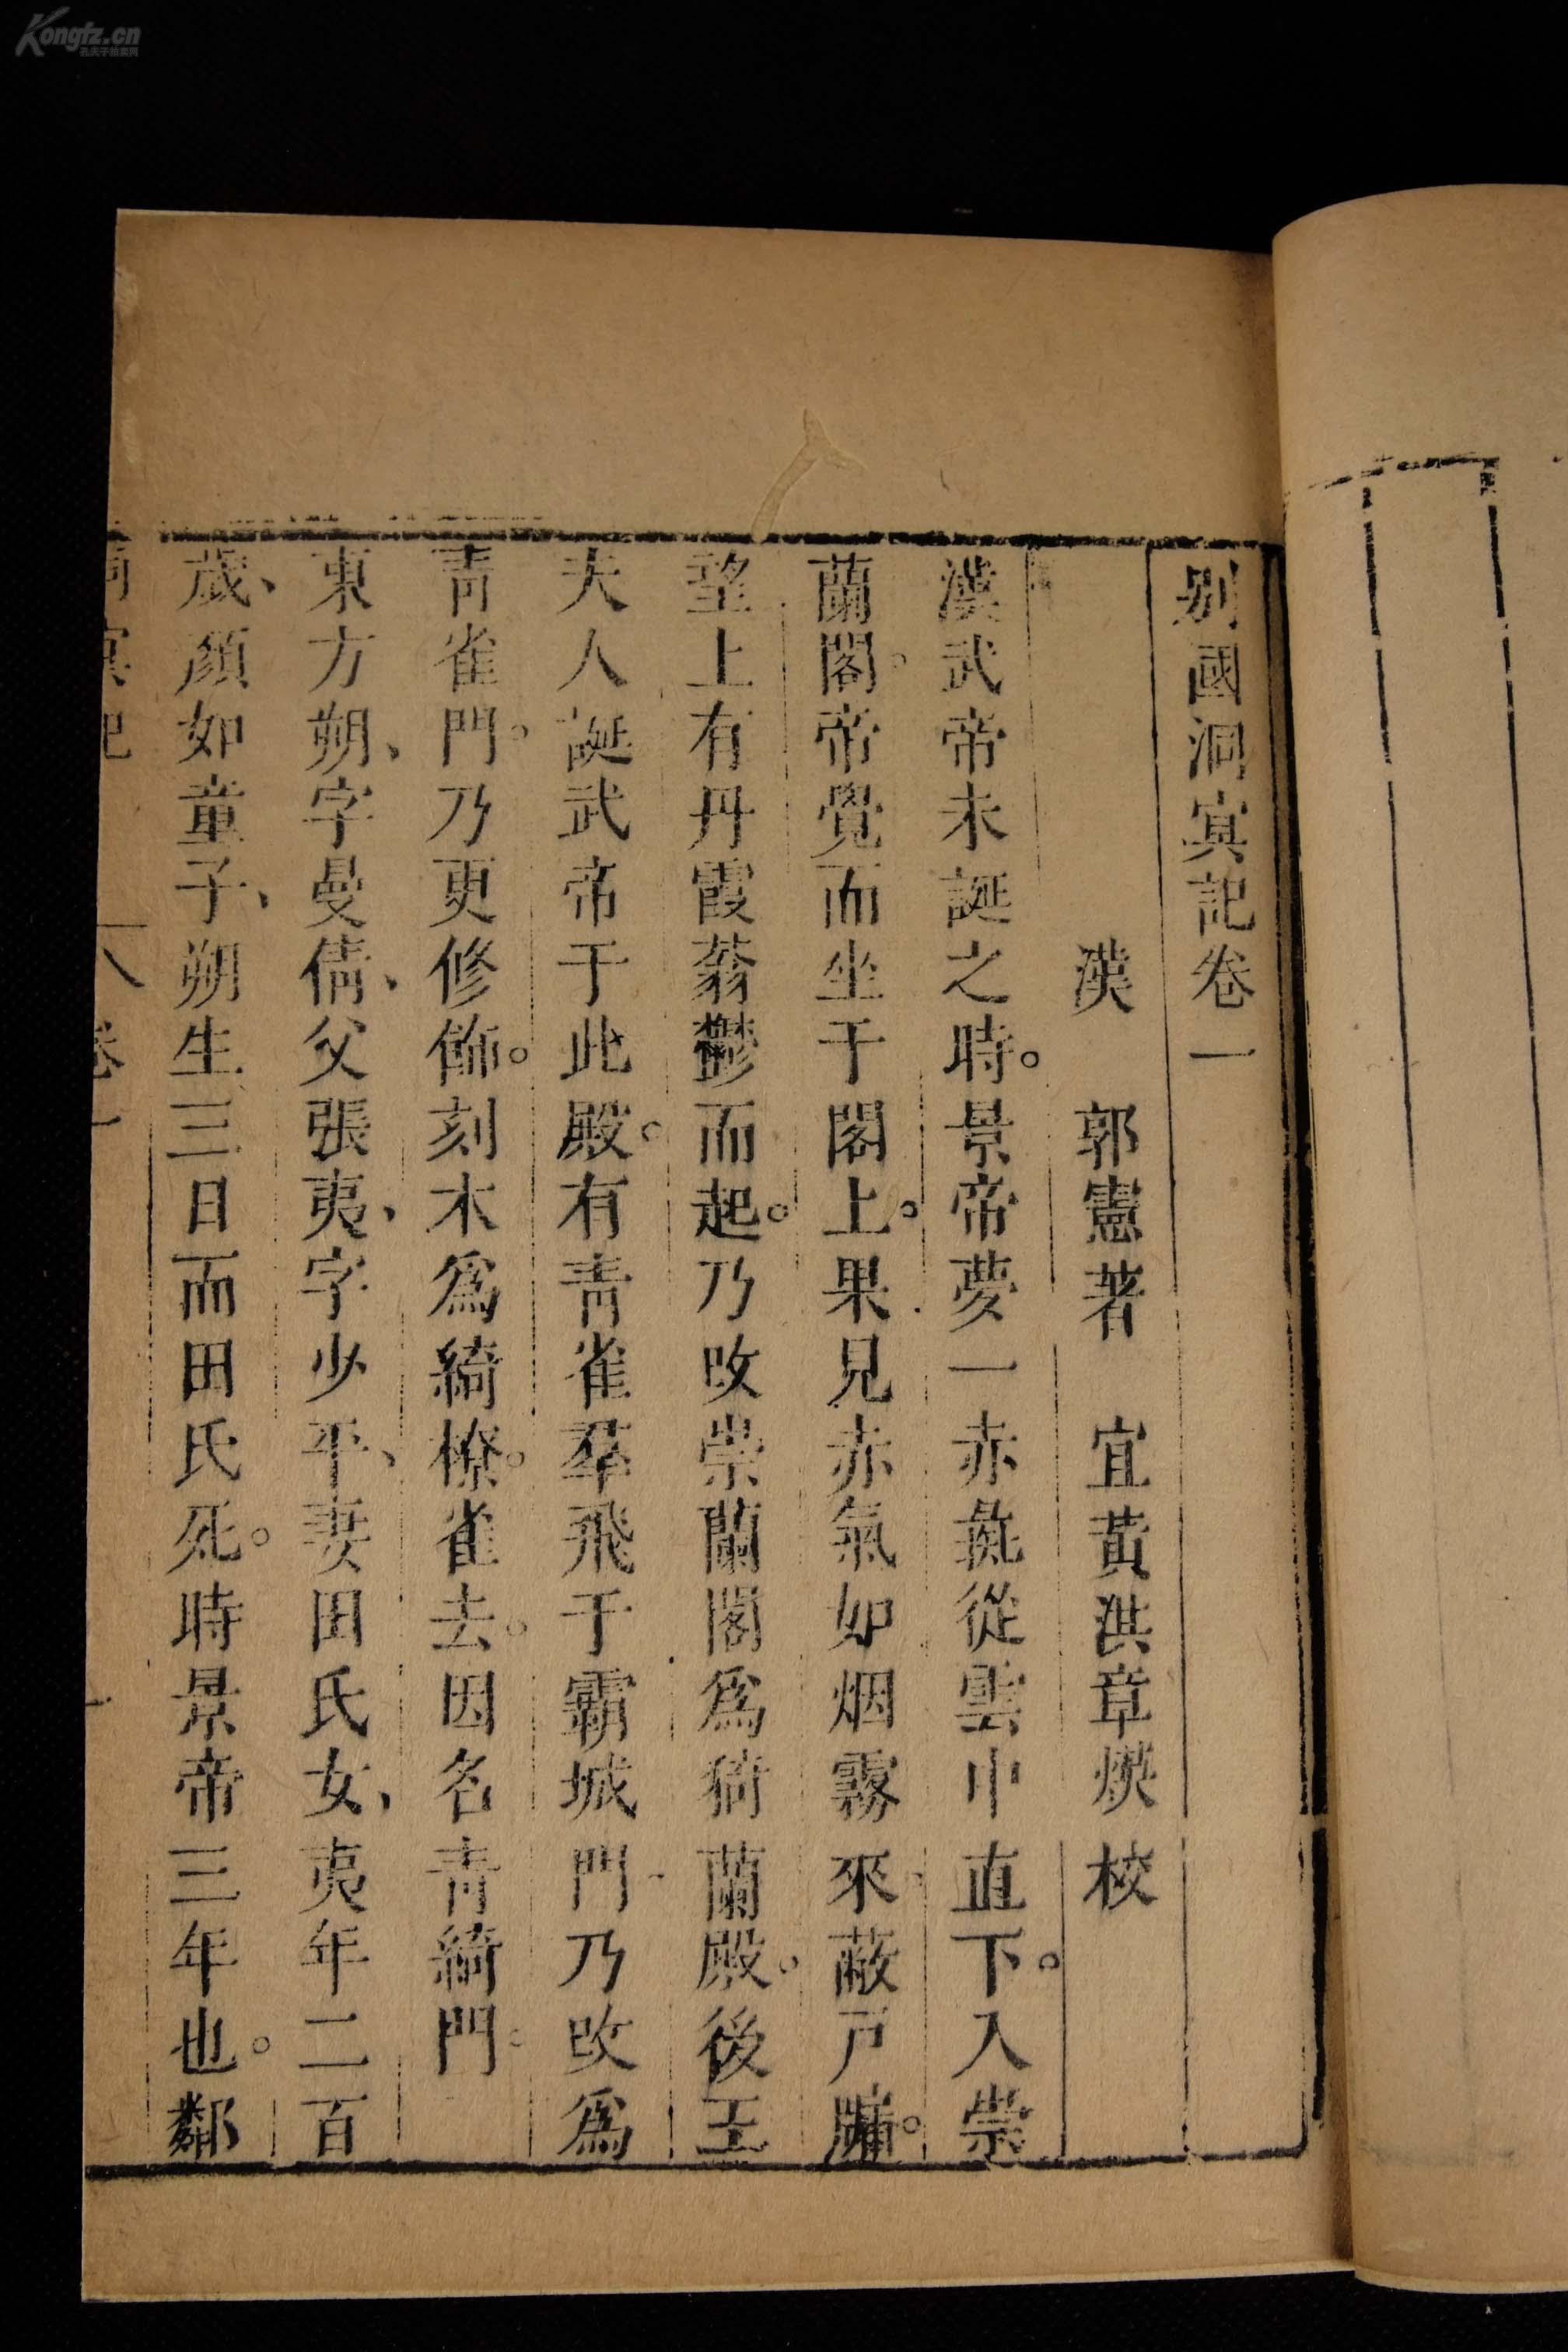 别國洞冥記卷一
漢 郭憲著 宜黃洪章燝校
漢武帝未誕之時。景帝夢一赤彘從雲中直下。入崇
蘭閣。帝覺而坐于閣上。果見赤氣如烟霧來蔽戸牖。
望上有丹霞蓊鬱而起。乃改崇蘭閣爲猗蘭殿。後王
夫人誕武帝于此殿。有青雀羣飛于霸城門乃改爲
青雀門。乃更修飾。刻木爲綺橑。雀去。因名青綺門。
東方朔、字曼倩、父張夷、字少平、妻田氏女、夷年二百
歲、顏如童子、朔生三日而田氏死。時景帝三年也。鄰
洞冥記 卷一 一
Kongfz.cn
孔夫子拍卖网